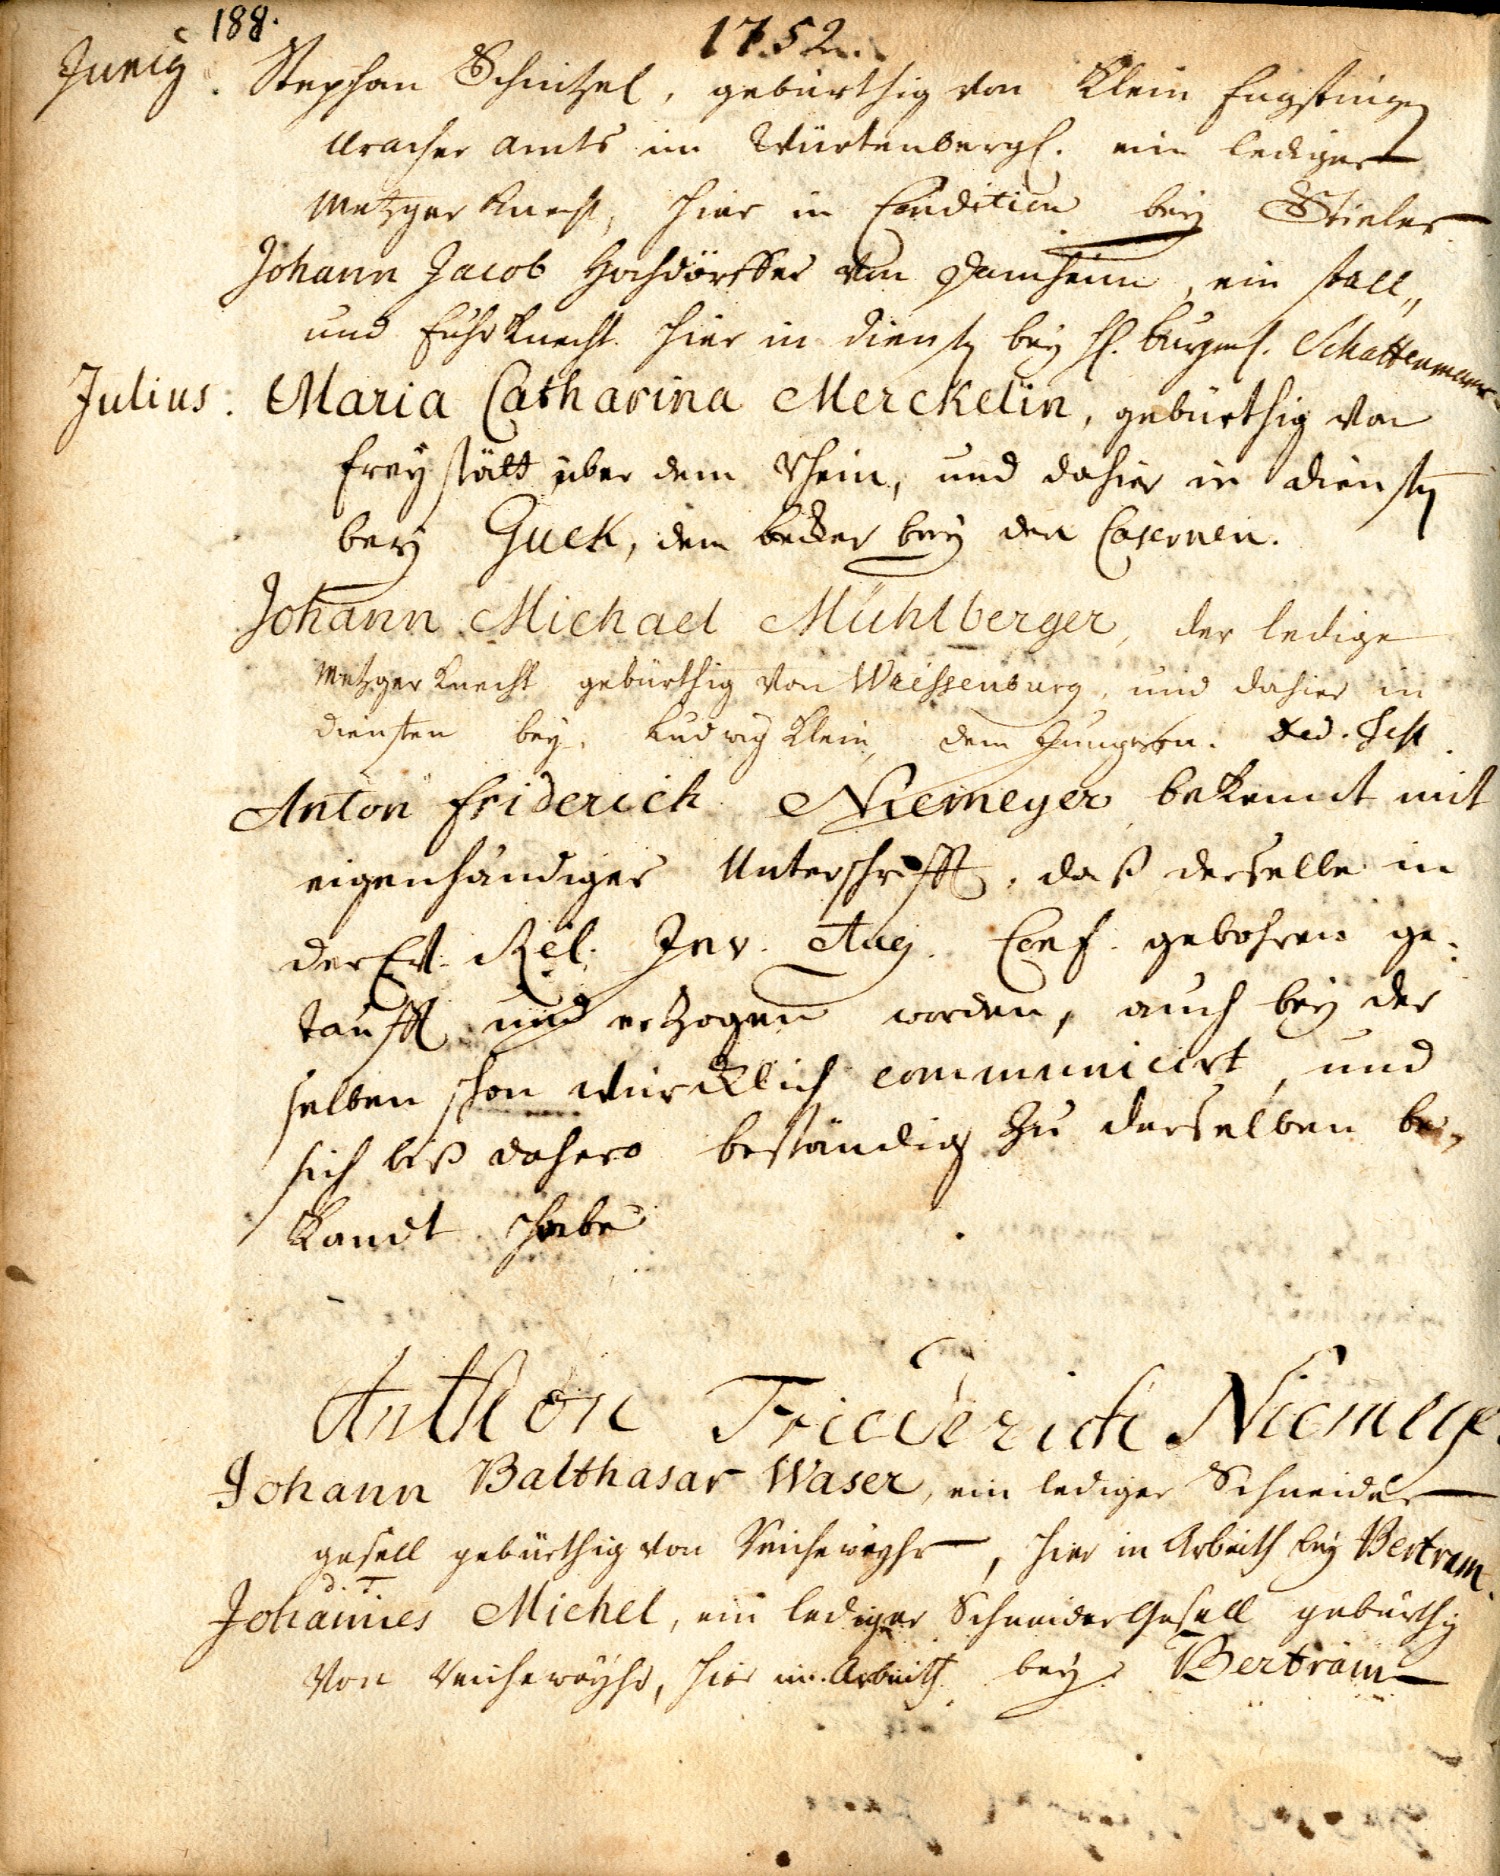 188.
1752.
Junig. Stephan Schnitzel, gebürthig von Klein Engstingen
Uracher Amts im Würtenbergl. ein lediger
Metzger Knecht, hier in Condition bey Stieler
Johann Jacob Hochdörffer von Damheim, ein stall„
und fuhrknecht hier in diensten bey H. burgmst. Schattenmann.
Julius. Maria Catharina Merckelin, gebürthig von
Freystätt über dem Rhein, und dahier in diensten
bey Guck, dem becker bey den Casernen.
Johann Michael Mühlberger, der ledige
Metzger Knecht gebürthig von Weissenburg, und dahier in
diensten bey Ludwig Klein, dem Jungern. ded. Test.
Anton Friderich Niemeyer bekennt mit
eigenhändiger Unterschrifft, daß derselbe in
der Ev. Rel. Inv. Aug. Conf. gebohren ge-
taufft und erzogen worden, auch bey der
selben schon würcklich communicirt, und
sich biß dahero beständig zu derselben be-
kandt habe
Anthon Friederich Niemeyer
Johann Balthasar Waser, ein lediger Schneider
gesell gebürthig von Reicheweyhr, hier in Arbeith bey Bertram.
Johannes Michel, ein lediger Schneider Gesell gebürthig
von Reicheweyhr, hier in Arbeith bey Bertram